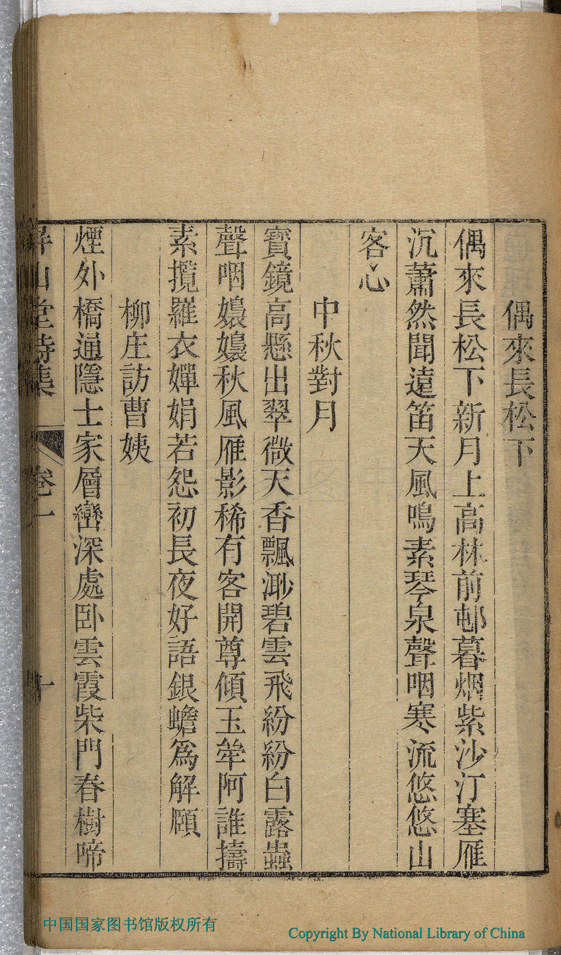 偶來長松下
偶來長松下新月上高林前邨暮烟紫沙汀塞雁
沉蕭然聞遠笛天風鳴素琴泉聲咽寒流悠悠山
客心
中秋對月
寶鏡高懸出翠微天香飄渺碧雲飛紛紛白露蟲
聲咽嬝嬝秋風雁影稀有客開尊傾玉斝阿誰擣
素攬羅衣嬋娟若怨初長夜好語銀蟾爲解頤
柳庄訪曹姨
煙外橋通隱士家層巒深處臥雲霞柴門春樹啼
山堂詩集 卷一 十
中国国家图书馆版权所有
Copyright By National Library of China